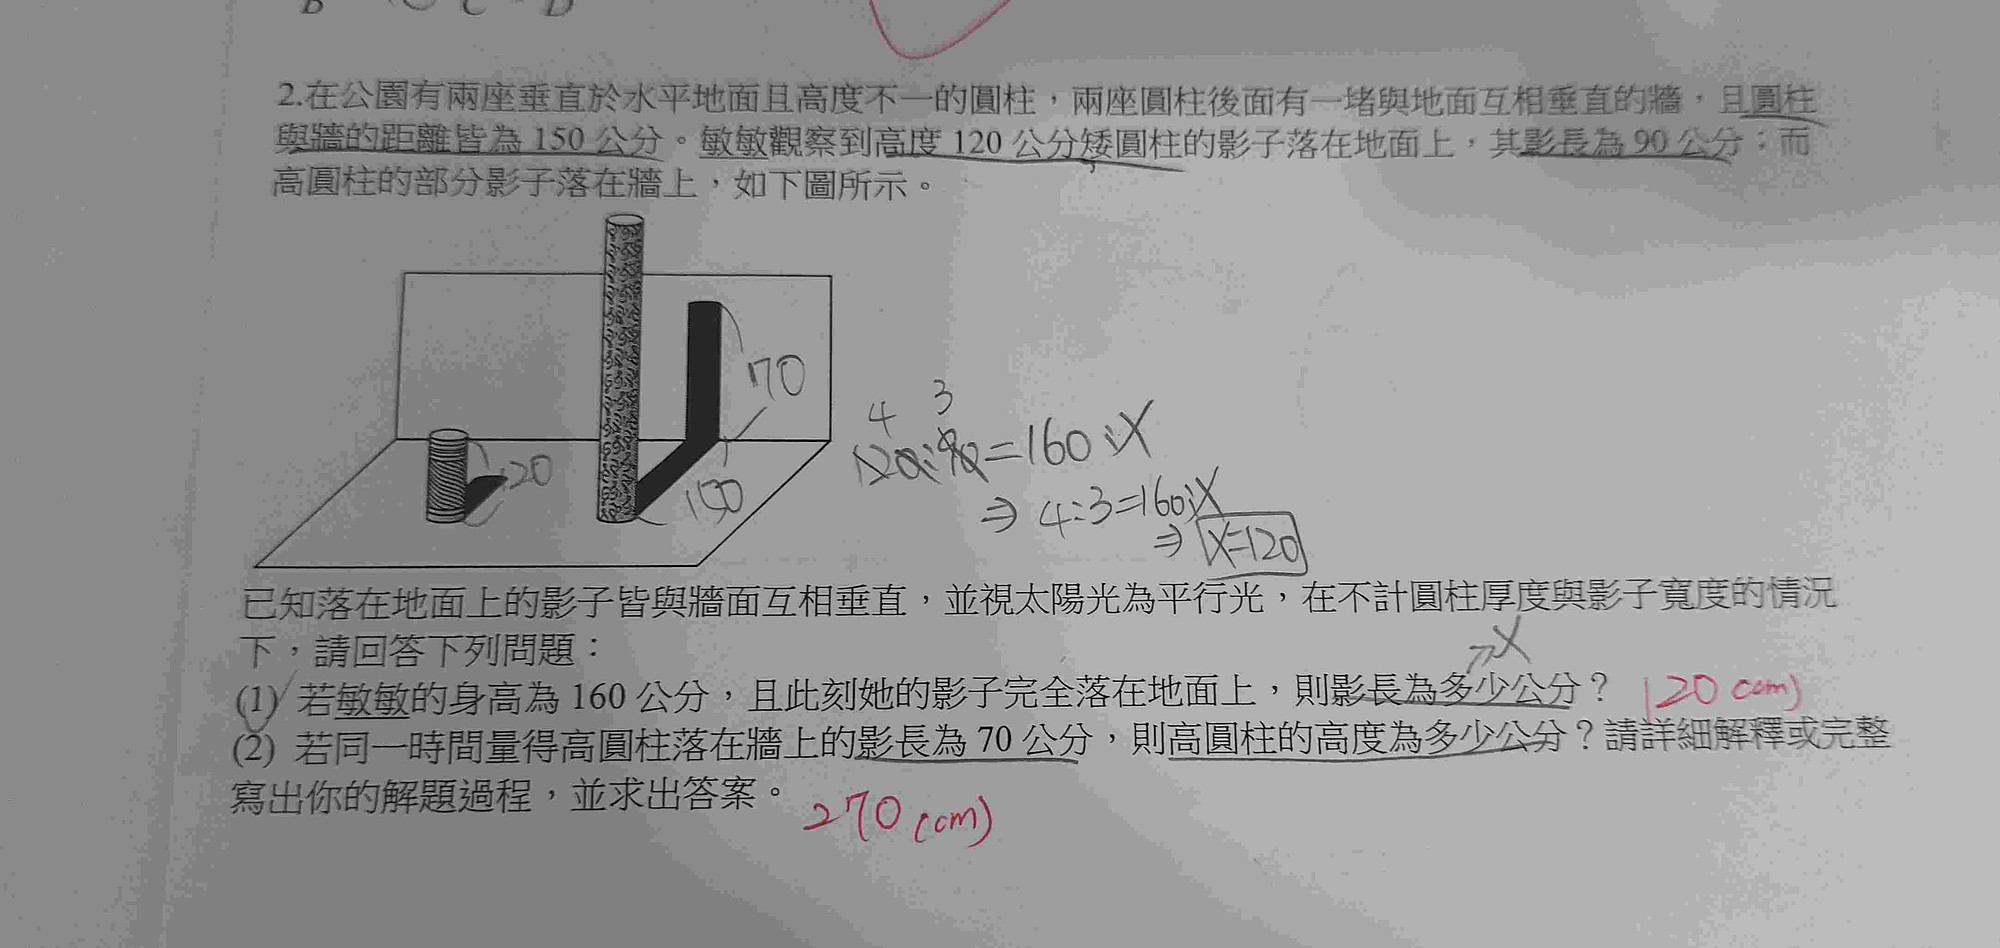 B C D
2.在公園有兩座垂直於水平地面且高度不一的圓柱，兩座圓柱後面有一堵與地面互相垂直的牆，且圓柱
與牆的距離皆為 150 公分。敏敏觀察到高度 120 公分矮圓柱的影子落在地面上，其影長為 90 公分；而
高圓柱的部分影子落在牆上，如下圖所示。
170
4 3
120:90=160:X
120
150
⇒ 4:3=160:X
⇒ X=120
已知落在地面上的影子皆與牆面互相垂直，並視太陽光為平行光，在不計圓柱厚度與影子寬度的情況
下，請回答下列問題：
⇒X
(1) 若敏敏的身高為 160 公分，且此刻她的影子完全落在地面上，則影長為多少公分？ 120 (cm)
(2) 若同一時間量得高圓柱落在牆上的影長為 70 公分，則高圓柱的高度為多少公分？請詳細解釋或完整
寫出你的解題過程，並求出答案。
270 (cm)